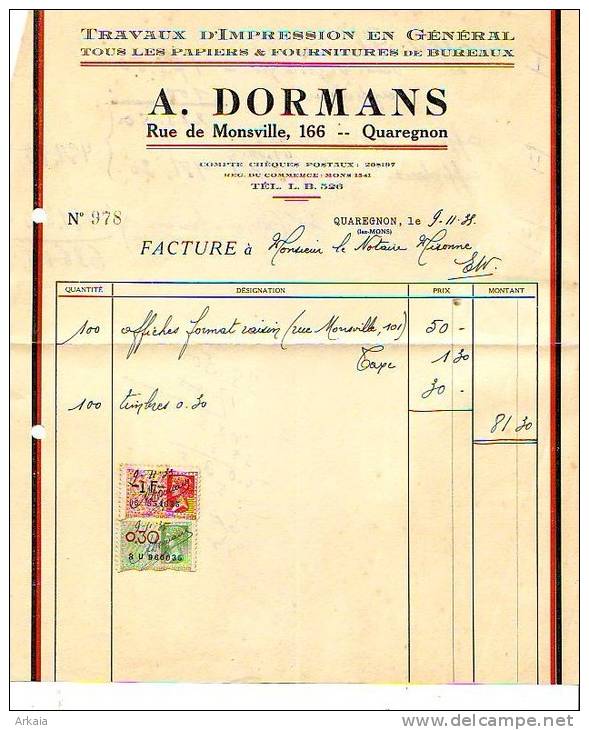 TRAVAUX D'IMPRESSION EN GÉNÉRAL
TOUS LES PAPIERS & FOURNITURES DE BUREAUX
A. DORMANS
Rue de Monsville, 166 -- Quaregnon
COMPTE CHÈQUES POSTAUX: 208197
REG. DU COMMERCE: MONS 1341
TÉL. L. B. 526
N° 978
QUAREGNON, le 9-11-38
(lez-MONS)
FACTURE à Monsieur le Notaire
EW.
QUANTITÉ DÉSIGNATION PRIX MONTANT
100 affiches format raisin (rue Monsville, 101) 50 -
Taxe 1 30
100 timbres 0.30 30 -
81 30
9-11-38
1F
9-11-38
0.30
S U 966036
Arkaia
www.delcampe.net